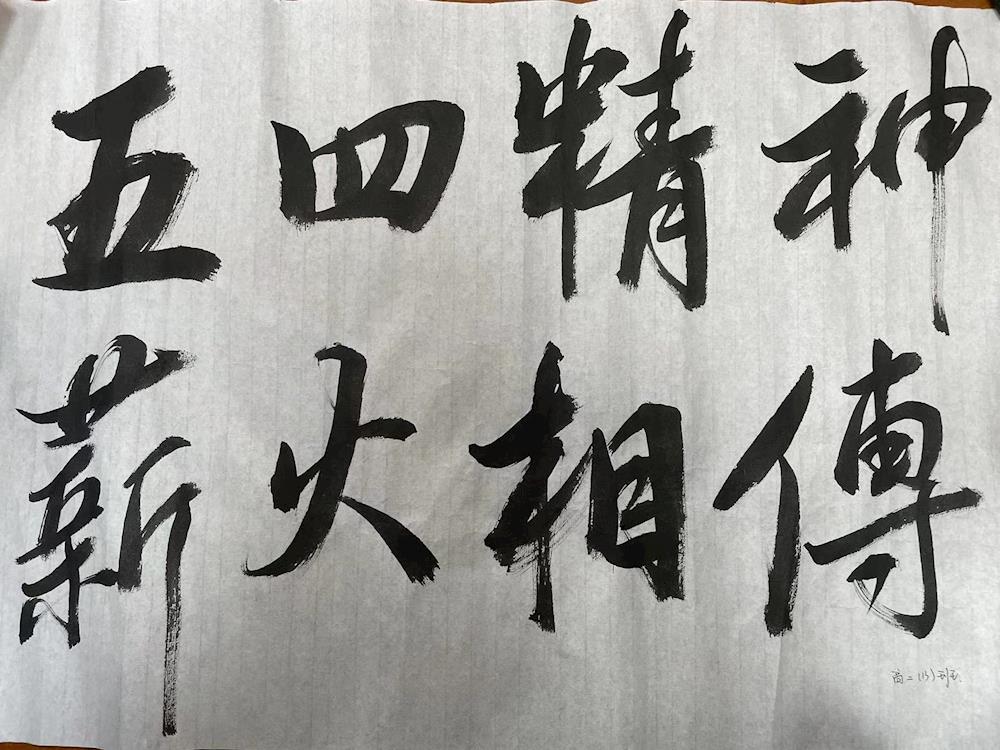 五四精神
薪火相傳
高二(13)班